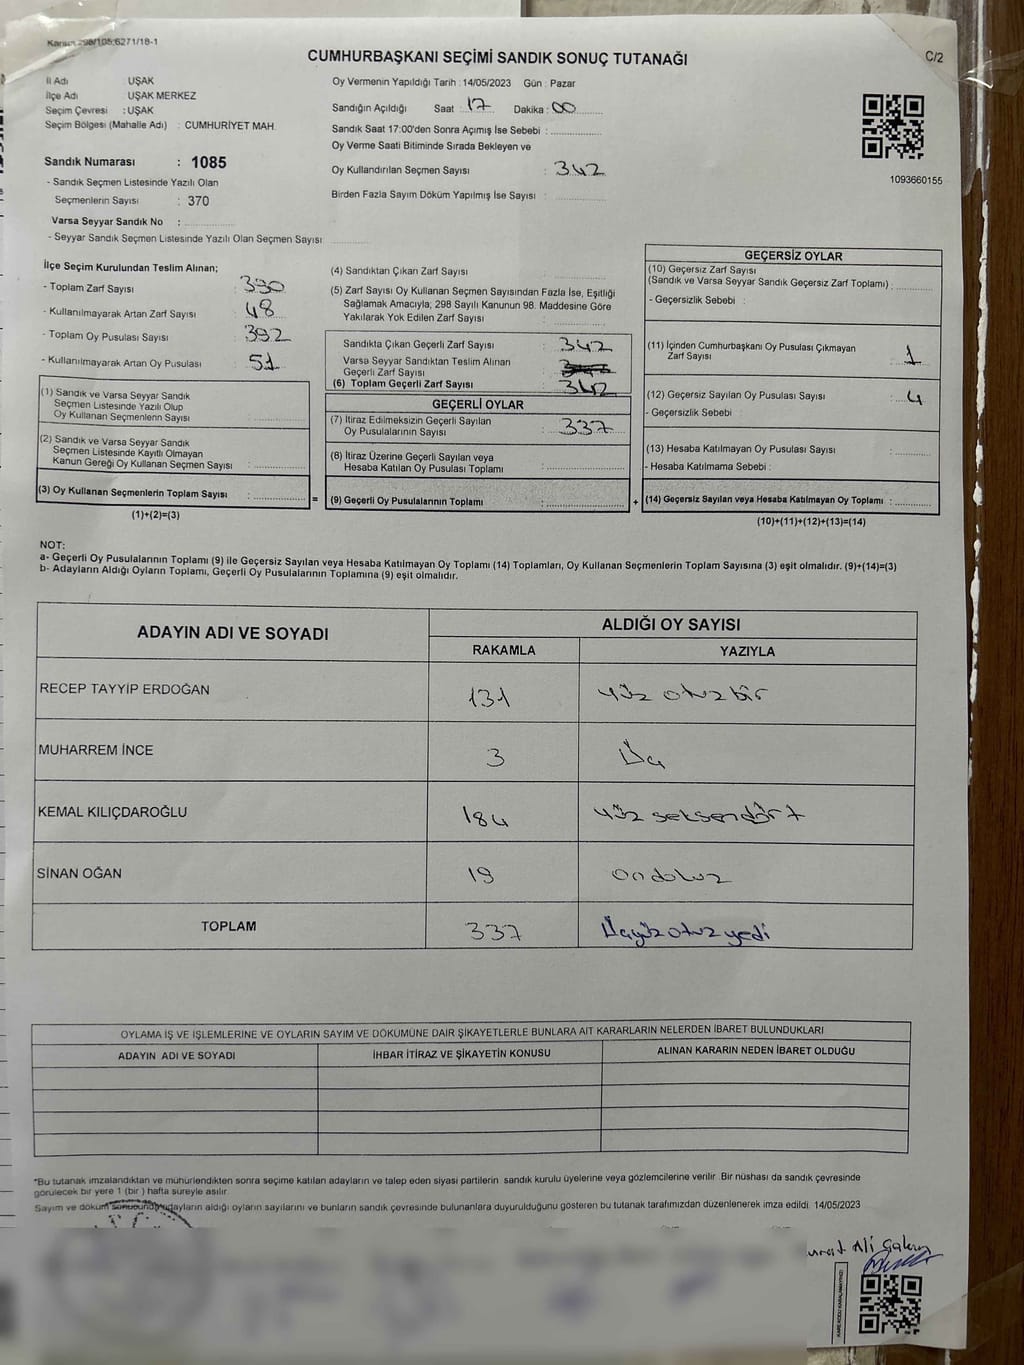 Kanun 298/105,6271/18-1
C/2
CUMHURBAŞKANI SEÇİMİ SANDIK SONUÇ TUTANAĞI
İl Adı UŞAK
İlçe Adı UŞAK MERKEZ
Seçim Çevresi : UŞAK
Seçim Bölgesi (Mahalle Adı) : CUMHURİYET MAH.
Sandık Numarası : 1085
- Sandık Seçmen Listesinde Yazılı Olan
Seçmenlerin Sayısı : 370
Varsa Seyyar Sandık No :
- Seyyar Sandık Seçmen Listesinde Yazılı Olan Seçmen Sayısı
Oy Vermenin Yapıldığı Tarih : 14/05/2023 Gün : Pazar
Sandığın Açıldığı Saat : 17 Dakika : 00
Sandık Saat 17:00'den Sonra Açımış İse Sebebi :
Oy Verme Saati Bitiminde Sırada Bekleyen ve
Oy Kullandırılan Seçmen Sayısı : 342
Birden Fazla Sayım Döküm Yapılmış İse Sayısı :
1093660155
İlçe Seçim Kurulundan Teslim Alınan;
- Toplam Zarf Sayısı : 390
- Kullanılmayarak Artan Zarf Sayısı : 48
- Toplam Oy Pusulası Sayısı : 392
- Kullanılmayarak Artan Oy Pusulası : 51
(1) Sandık ve Varsa Seyyar Sandık
Seçmen Listesinde Yazılı Olup
Oy Kullanan Seçmenlerin Sayısı :
(2) Sandık ve Varsa Seyyar Sandık
Seçmen Listesinde Kayıtlı Olmayan
Kanun Gereği Oy Kullanan Seçmen Sayısı :
(3) Oy Kullanan Seçmenlerin Toplam Sayısı :
(1)+(2)=(3)
(4) Sandıktan Çıkan Zarf Sayısı :
(5) Zarf Sayısı Oy Kullanan Seçmen Sayısından Fazla İse, Eşitliği
Sağlamak Amacıyla; 298 Sayılı Kanunun 98. Maddesine Göre
Yakılarak Yok Edilen Zarf Sayısı :
Sandıkta Çıkan Geçerli Zarf Sayısı : 342
Varsa Seyyar Sandıktan Teslim Alınan
Geçerli Zarf Sayısı :
(6) Toplam Geçerli Zarf Sayısı : 342
GEÇERLİ OYLAR
(7) İtiraz Edilmeksizin Geçerli Sayılan
Oy Pusulalarının Sayısı : 337
(8) İtiraz Üzerine Geçerli Sayılan veya
Hesaba Katılan Oy Pusulası Toplamı :
= (9) Geçerli Oy Pusulalarının Toplamı : +
GEÇERSİZ OYLAR
(10) Geçersiz Zarf Sayısı
(Sandık ve Varsa Seyyar Sandık Geçersiz Zarf Toplamı) :
- Geçersizlik Sebebi :
(11) İçinden Cumhurbaşkanı Oy Pusulası Çıkmayan
Zarf Sayısı : 1
(12) Geçersiz Sayılan Oy Pusulası Sayısı : 4
- Geçersizlik Sebebi :
(13) Hesaba Katılmayan Oy Pusulası Sayısı :
- Hesaba Katılmama Sebebi :
(14) Geçersiz Sayılan veya Hesaba Katılmayan Oy Toplamı :
(10)+(11)+(12)+(13)=(14)
NOT:
a- Geçerli Oy Pusulalarının Toplamı (9) ile Geçersiz Sayılan veya Hesaba Katılmayan Oy Toplamı (14) Toplamları, Oy Kullanan Seçmenlerin Toplam Sayısına (3) eşit olmalıdır. (9)+(14)=(3)
b- Adayların Aldığı Oyların Toplamı, Geçerli Oy Pusulalarının Toplamına (9) eşit olmalıdır.
ADAYIN ADI VE SOYADI ALDIĞI OY SAYISI
RAKAMLA YAZIYLA
RECEP TAYYİP ERDOĞAN 131 Yüz otuz bir
MUHARREM İNCE 3 Üç
KEMAL KILIÇDAROĞLU 184 Yüz seksendört
SİNAN OĞAN 19 On dokuz
TOPLAM 337 Üçyüz otuz yedi
OYLAMA İŞ VE İŞLEMLERİNE VE OYLARIN SAYIM VE DÖKÜMÜNE DAİR ŞİKAYETLERLE BUNLARA AİT KARARLARIN NELERDEN İBARET BULUNDUKLARI
ADAYIN ADI VE SOYADI İHBAR İTİRAZ VE ŞİKAYETİN KONUSU ALINAN KARARIN NEDEN İBARET OLDUĞU
"Bu tutanak imzalandıktan ve mühürlendikten sonra seçime katılan adayların ve talep eden siyasi partilerin sandık kurulu üyelerine veya gözlemcilerine verilir. Bir nüshası da sandık çevresinde
görülecek bir yere 1 (bir ) hafta süreyle asılır.
Sayım ve döküm sonucunda adayların aldığı oyların sayılarını ve bunların sandık çevresinde bulunanlara duyurulduğunu gösteren bu tutanak tarafımızdan düzenlenerek imza edildi. 14/05/2023
Ali
KARE KODU KARALAMAYINIZ!